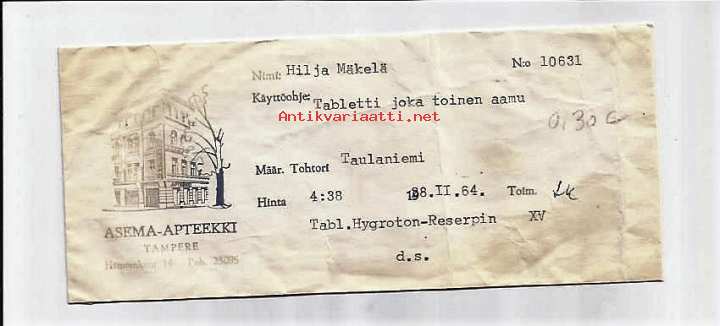 Nimi: Hilja Mäkelä N:o 10631
Käyttöohje: Tabletti joka toinen aamu
Antikvariaatti.net
0,30
Määr. Tohtori Taulaniemi
Hinta 4:38 28.II.64. Toim.
ASEMA-APTEEKKI
Tabl.Hygroton-Reserpin XV
TAMPERE
14 Puh. 25095
d.s.